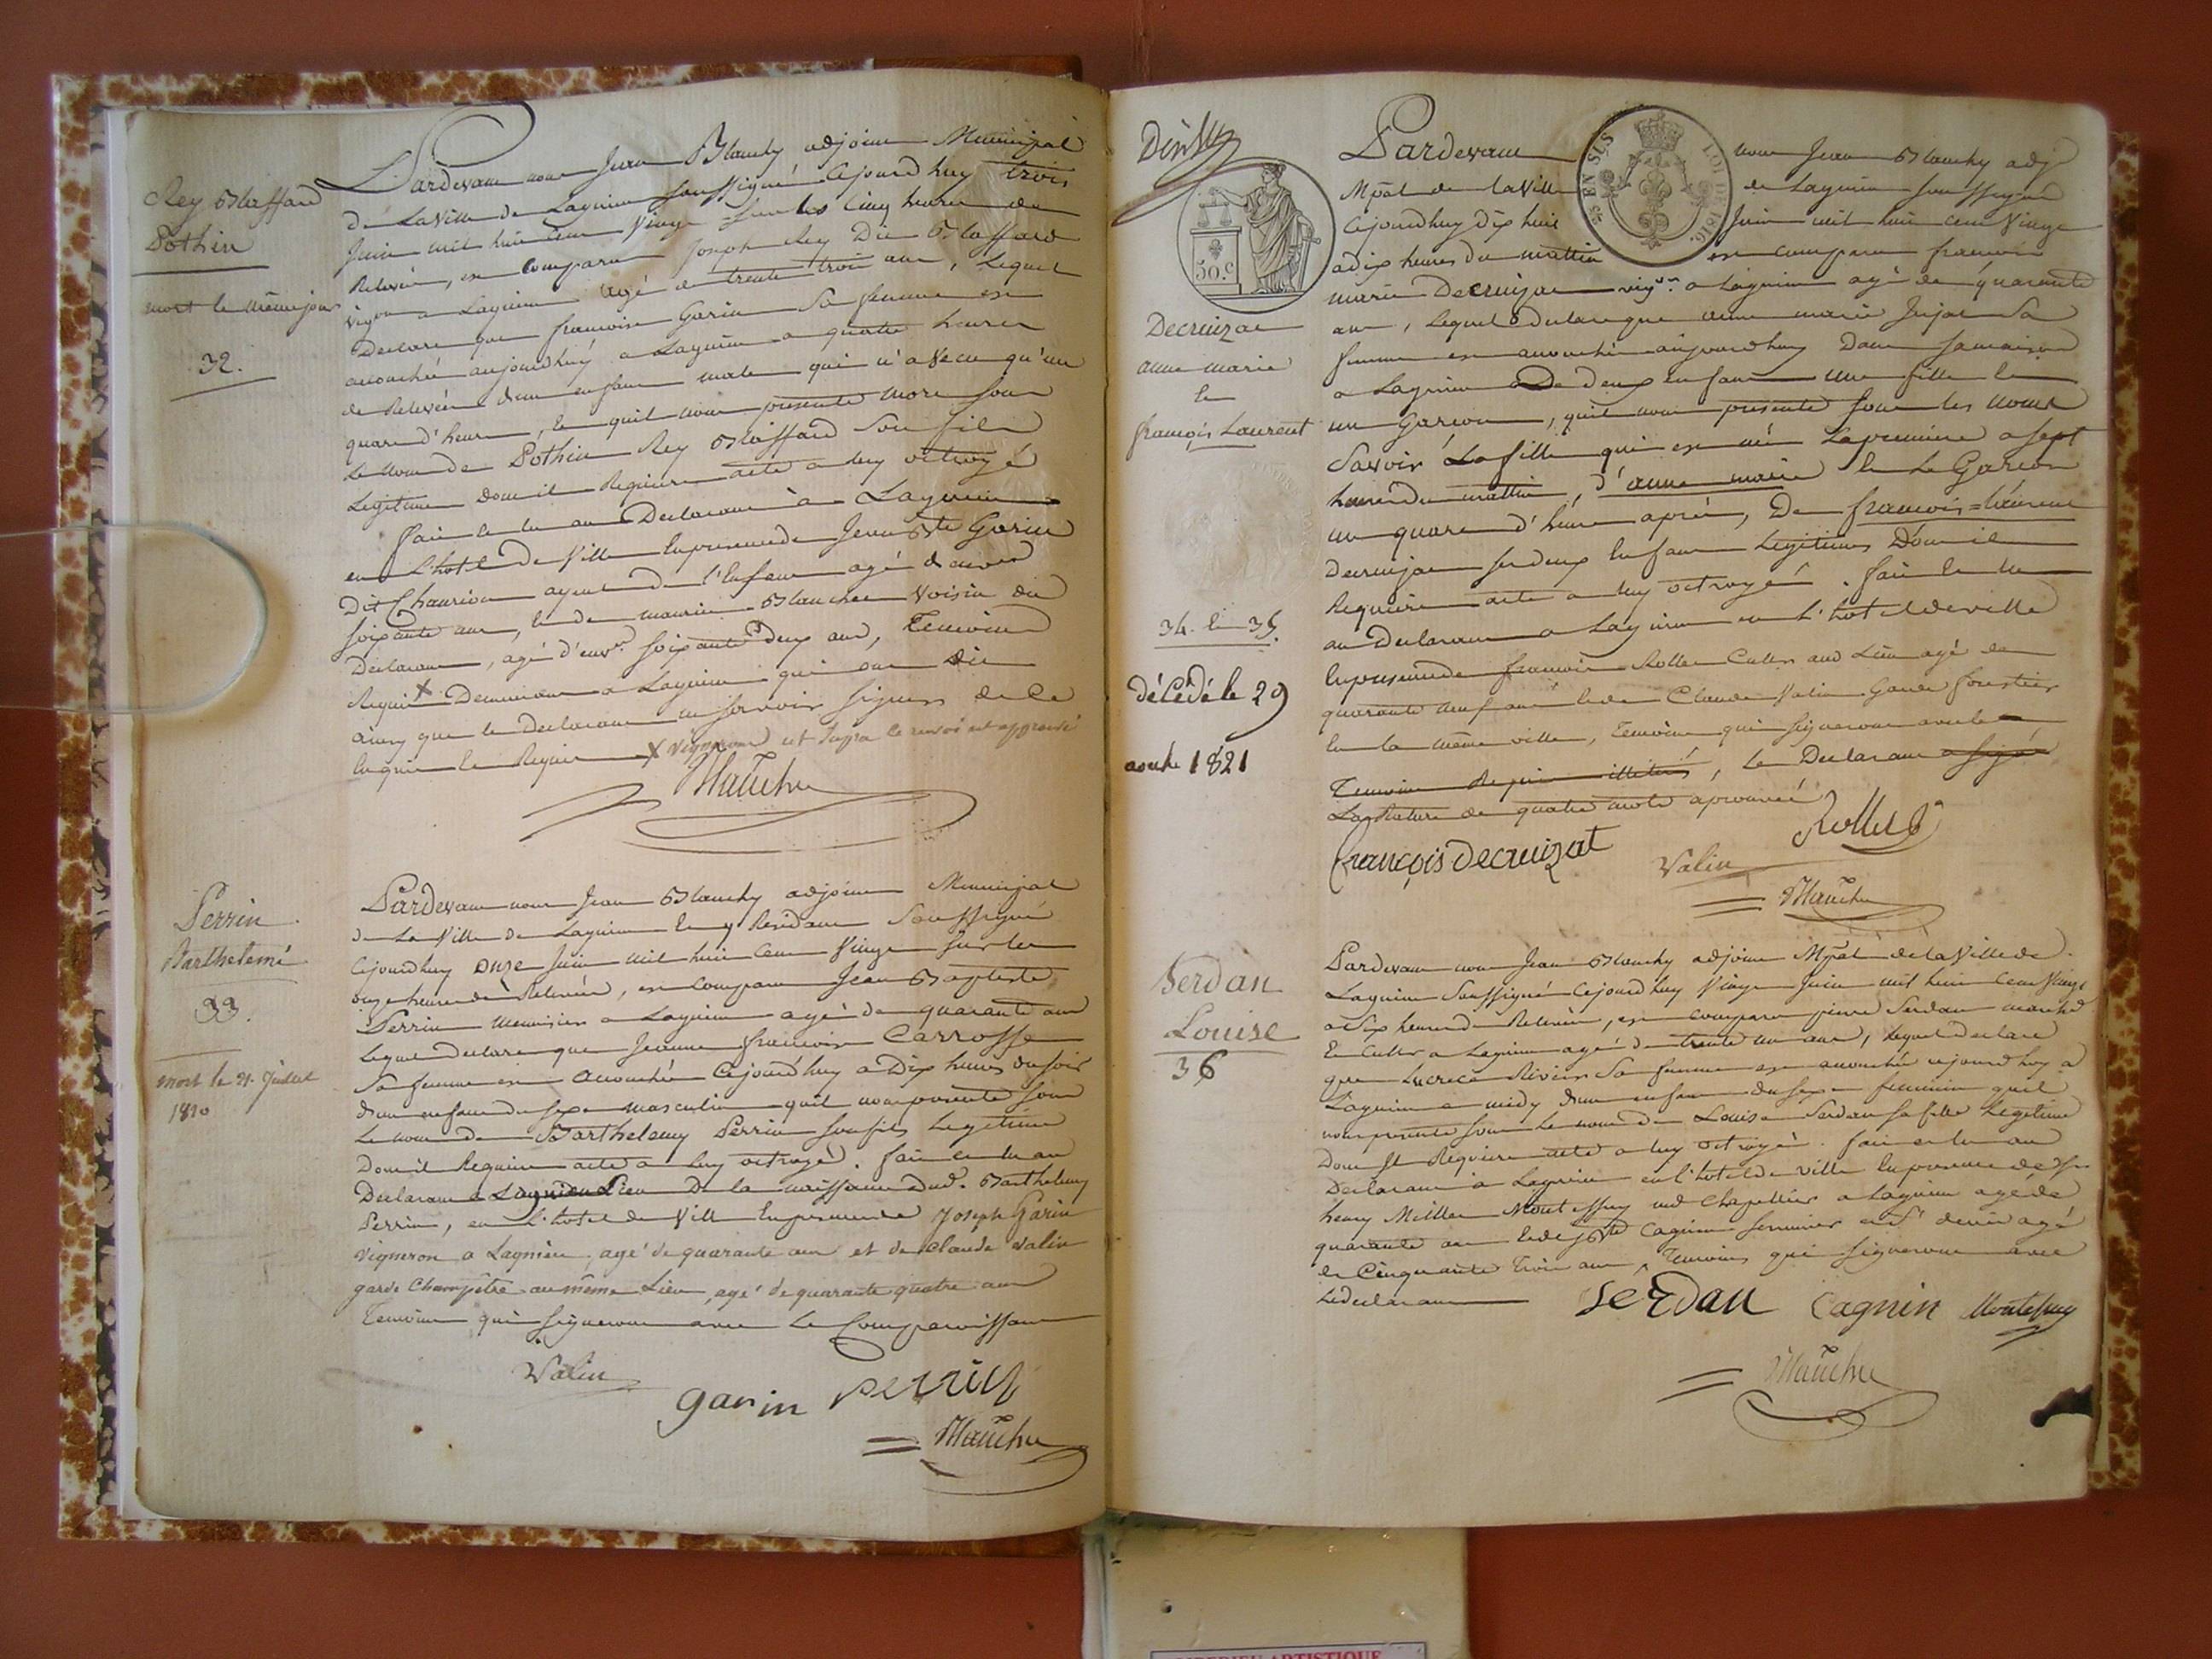 Rey Blaffard
Pothin
mort le même jour
32.
Pardevant nous Jean Blanchy adjoint Municipal
De La Ville de Lagnieu soussigné Cejourdhuy trois
Juin mil huit Cent Vingt sur les Cinq heures de
Relevée, est Comparu Joseph Rey Dit Blaffard
vigon a Lagnieu agé de trente trois ans, Lequel
Declare que francoise Garin Sa femme est
accouchée aujourdhuy a Lagnieu a quatre heures
de Relevée d'un enfant male qui n'a Vecu qu'un
quart d'heure, lequel nous presente mort sous
Le nom de Pothin Rey Blaffard Son fils
Legitime dont il Requiere acte a luy octroyé
fait et lu au Declarant à Lagnieu
en L'hotel De Ville En presence de Jean Bte Garin
Dit Chaurion ayeul De l'Enfant agé d'environ
soixante ans, et de maurice Blanchet Voisin du
Declarant, agé d'envon soixante deux ans, Temoins
Requis X Demeurant a Lagnieu qui ont dit
ainsy que le declarant ne scavoir signer de ce
Enquis et Requis X vignerons ut supra le renvoi est approuvé
Blanchy
Perrin
Barthelemi
33.
mort le 21 Juillet
1820
Pardevant nous Jean Blanchy adjoint Municipal
de La Ville de Lagnieu En y Residant Soussigné
Cejourdhuy onze Juin mil huit Cent Vingt sur les
onze heures de Relevée, est Comparu Jean Baptiste
Perrin Menuisier a Lagnieu agé de quarante ans
Lequel declare que Jeanne francoise Carrosse
Sa femme est accouchée Cejourd'huy a Dix heures du soir
d'un enfant du sexe masculin quil nous presente sous
Le nom de Barthelemy Perrin son fils Legitime
Dont il Requiere acte a luy octroyé. fait et lu au
Declarant a Lagnieu Lieu De la naissance dud. Barthelemy
Perrin, en L'hotel de Ville En presence de Joseph Garin
vigneron a Lagnieu, agé de quarante ans et de claude valin
garde champêtre au même Lieu, agé de quarante quatre ans
Temoins qui signeront avec Le Comparoissant
Valin
garin perrin
Blanchy
50.c
EN SUS
LOI DE 1816.
Decruizat
anne marie
et
françois Laurent
34. et 35.
décédé le 29
aoust 1821
Pardevant nous Jean Blanchy adjt
Mpal de la Ville de Lagnieu soussigné
Cejourdhuy dix huit Juin mil huit cent Vingt
a dix heures du mattin est comparu francois
marie Decruizat vigon a Lagnieu agé de quarante
ans, Lequel declare que anne marie Jujat Sa
femme est accouchée aujourdhuy Dans sa maison
a Lagnieu De deux enfans une fille et
un Garcon, quil nous presente sous les noms
Savoir La fille qui est née La premiere a sept
heures du mattin, d'anne marie et Le Garcon
un quart d'heure après, De francois=laurent
Decruizat ses deux Enfans Legitimes Dont il
Requiere acte a luy octroyé. fait et lu
au Declarant a Lagnieu en L'hotel de ville
En presence de francois Rollet Cultr aud Lieu agé de
quarante neuf ans et de Claude Valin Garde forestier
En la même ville, Temoins qui signeront avec le
Temoins Requis illitérés, Le Declarant a signé
La Rature de quatre mots aprouvée
Rollet
françois decruizat
Valin
Blanchy
Serdan
Louise
36
Pardevant nous Jean Blanchy adjoint Mpal de la Ville de
Lagnieu Soussigné Cejourdhuy Vingt Juin mil huit Cent Vingt
a six heures de Relevée, est comparu pierre Serdan marchd
Et Cultr a Lagnieu agé de trente un ans, Lequel declare
que Lucrece Riviere Sa femme est accouchée cejourdhuy a
Lagnieu a midy d'un enfant du sexe feminin quil
nous presente sous Le nom de Louise Serdan sa fille Legitime
Dont Il Requiere acte a luy octroyé. fait et lu au
Declarant a Lagnieu en l'hotel de ville En presence de
henry Montessuy md Chapellier a Lagnieu agé de
quarante ans et de Cagnin agé
de Cinquante trois ans, Temoins qui signeront avec
Le declarant
serdan Cagnin Montessuy
Blanchy